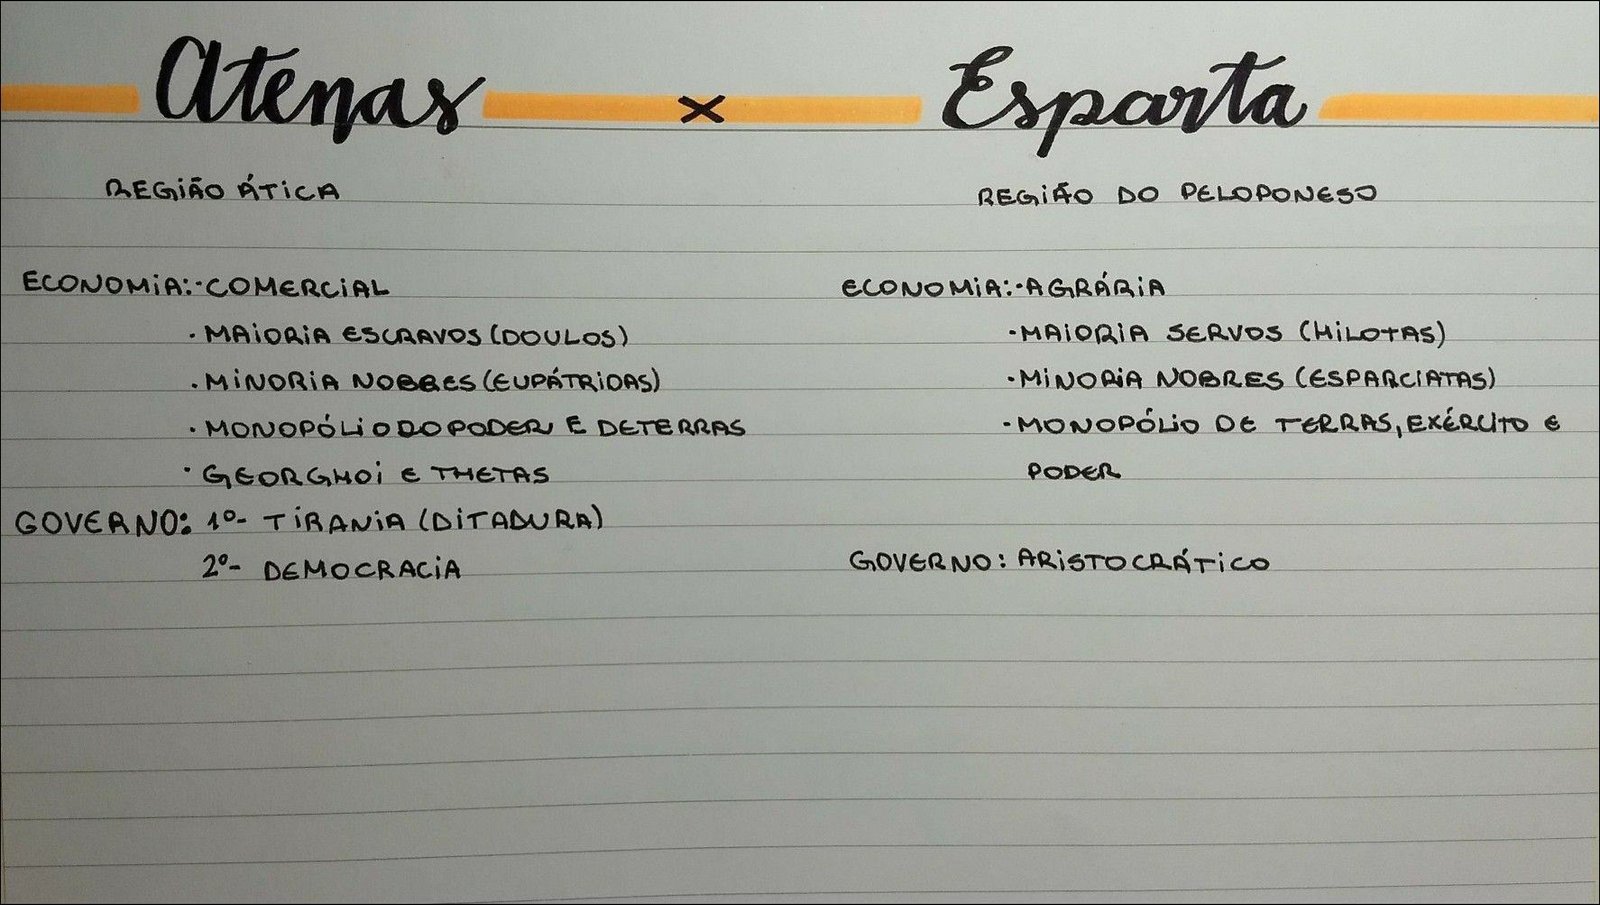 Atenas x Esparta
REGIÃO ÁTICA
ECONOMIA:·COMERCIAL
·MAIORIA ESCRAVOS (DOULOS)
·MINORIA NOBRES (EUPÁTRIDAS)
·MONOPÓLIO DO PODER E DE TERRAS
·GEORGHOI E THETAS
GOVERNO: 1º- TIRANIA (DITADURA)
2º- DEMOCRACIA
REGIÃO DO PELOPONESO
ECONOMIA:·AGRÁRIA
·MAIORIA SERVOS (HILOTAS)
·MINORIA NOBRES (ESPARCIATAS)
·MONOPÓLIO DE TERRAS, EXÉRCITO E
PODER
GOVERNO: ARISTOCRÁTICO